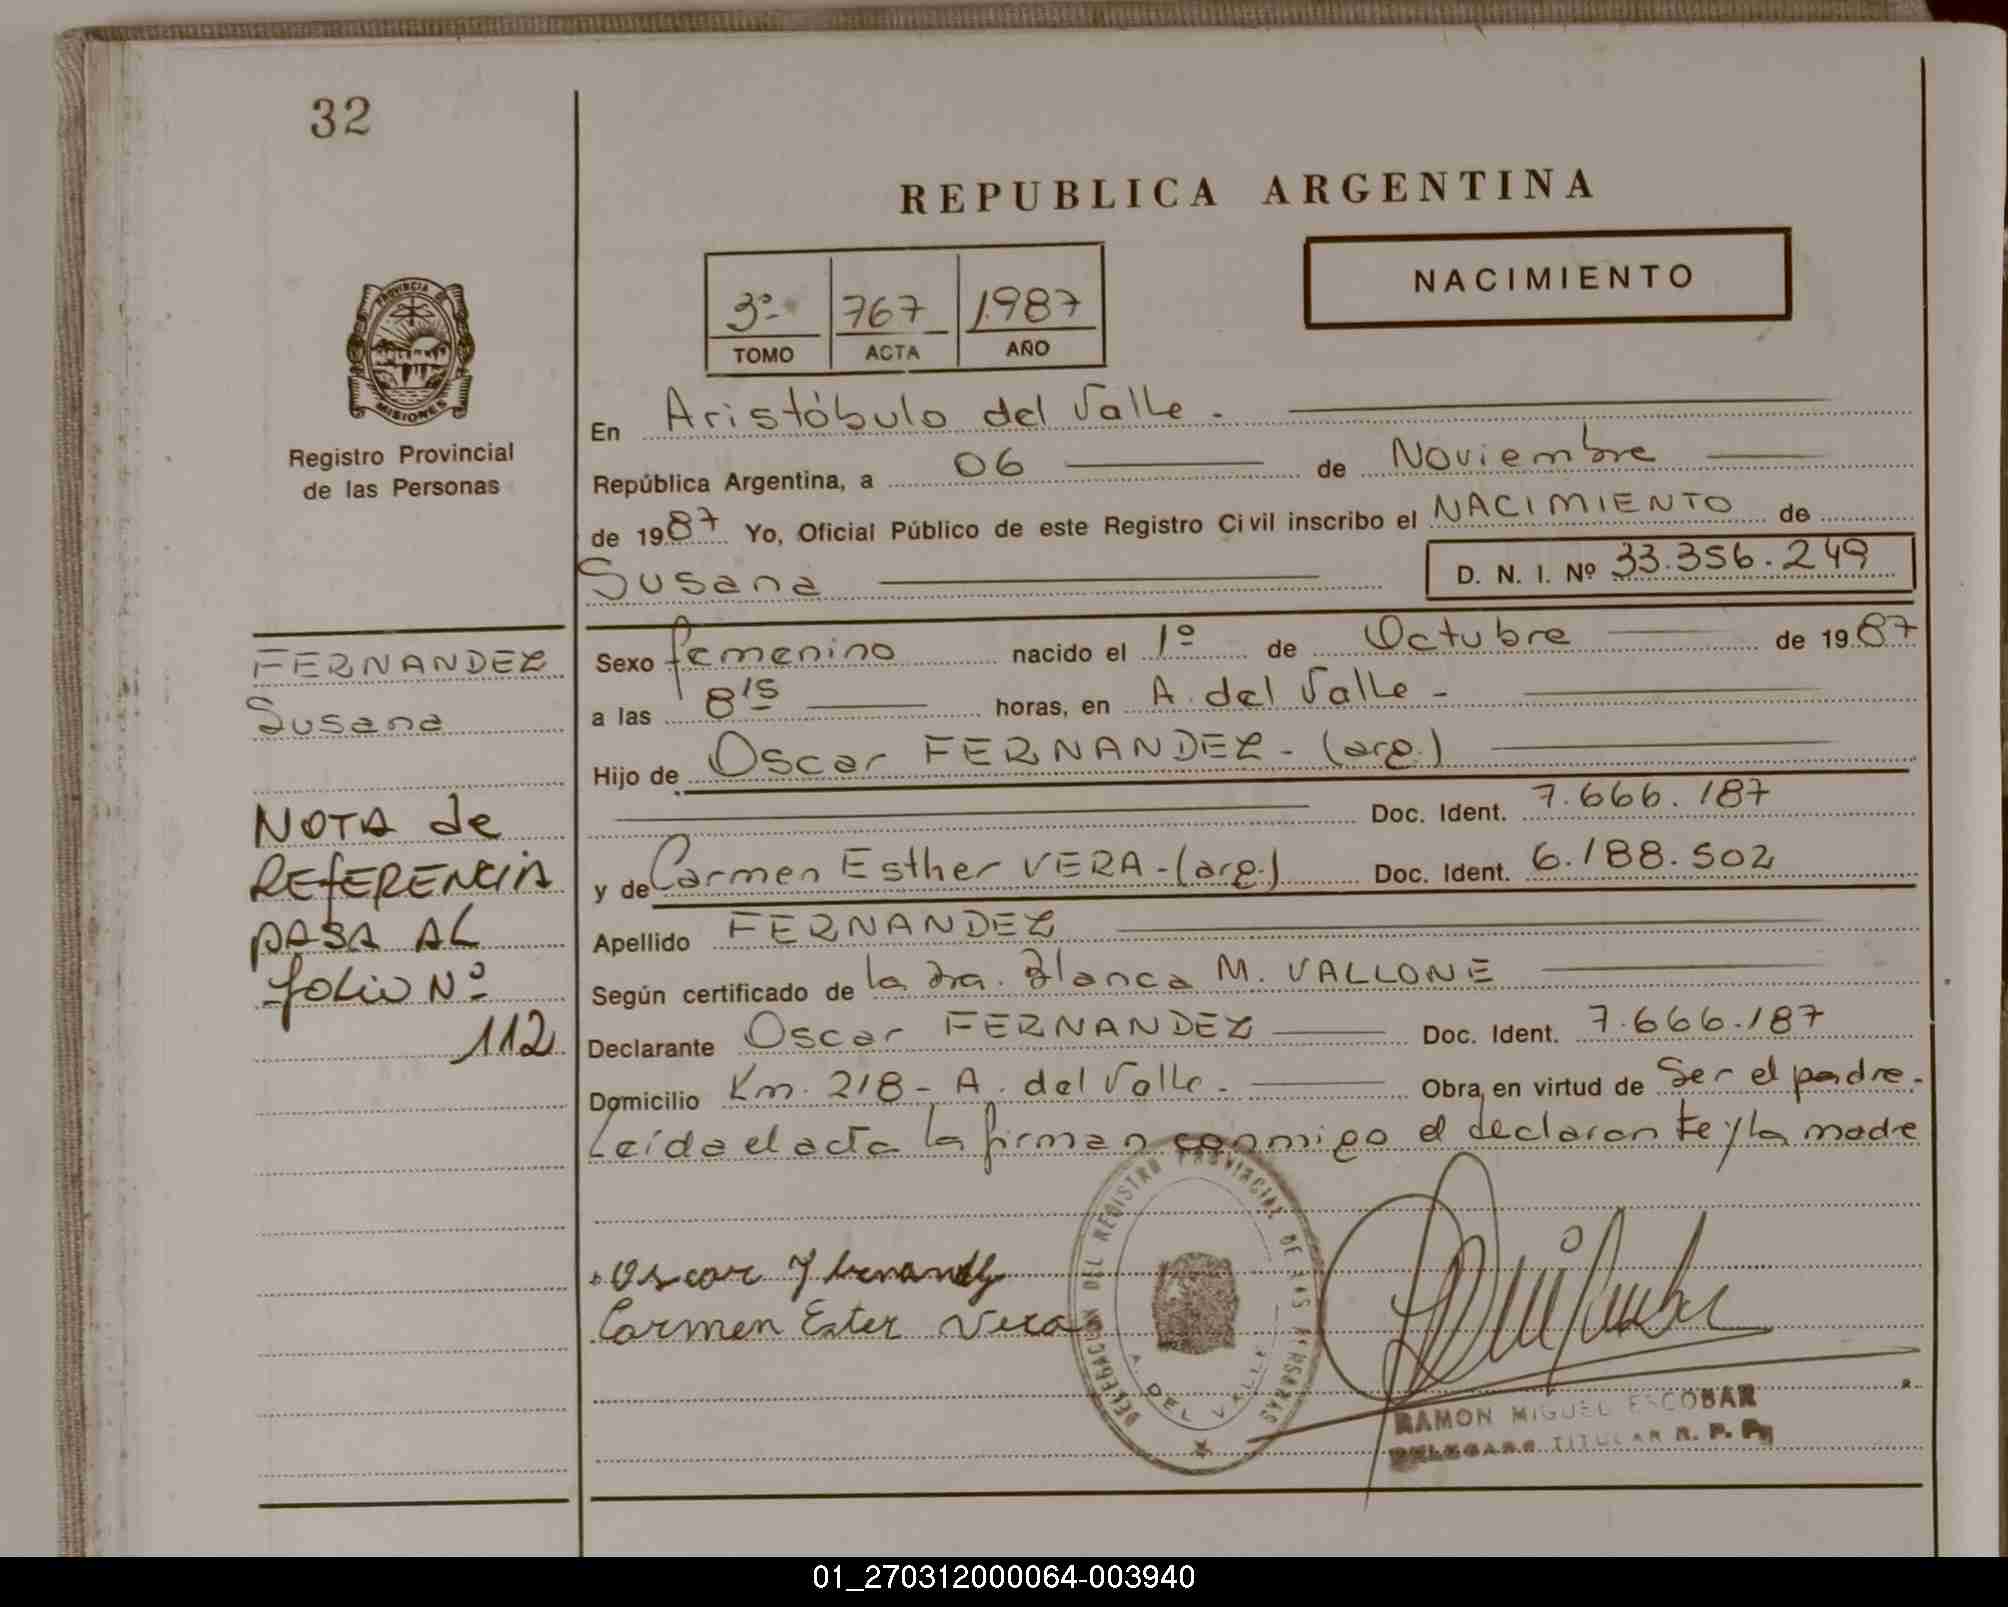 32
REPUBLICA ARGENTINA
NACIMIENTO
3º 767 1987
TOMO ACTA AÑO
PROVINCIA DE
MISIONES
Registro Provincial
de las Personas
En Aristóbulo del Valle.
República Argentina, a 06 de Noviembre
de 1987 Yo, Oficial Público de este Registro Civil inscribo el NACIMIENTO de
Susana D. N. I. Nº 33.356.249
FERNANDEZ
Susana
NOTA de
REfERENCIA
PASA AL
folio Nº
112
Sexo femenino nacido el 1º de Octubre de 1987
a las 8'15 horas, en A. del Valle -
Hijo de Oscar FERNANDEZ - (arg.)
Doc. Ident. 7.666.187
y de Carmen Esther VERA - (arg.) Doc. Ident. 6.188.502
Apellido FERNANDEZ
Según certificado de la Dra. Blanca M. VALLONE
Declarante Oscar FERNANDEZ Doc. Ident. 7.666.187
Domicilio Km. 218 - A. del Valle. Obra en virtud de Ser el padre.
Leída el acta la firman conmigo el declarante y la madre
Oscar Fernandez
Carmen Ester Vera
DELEGACION DEL REGISTRO PROVINCIAL DE LAS PERSONAS
A. DEL VALLE
RAMON MIGUEL ESCOBAR
DELEGADO TITULAR R. P. P.
01_270312000064-003940